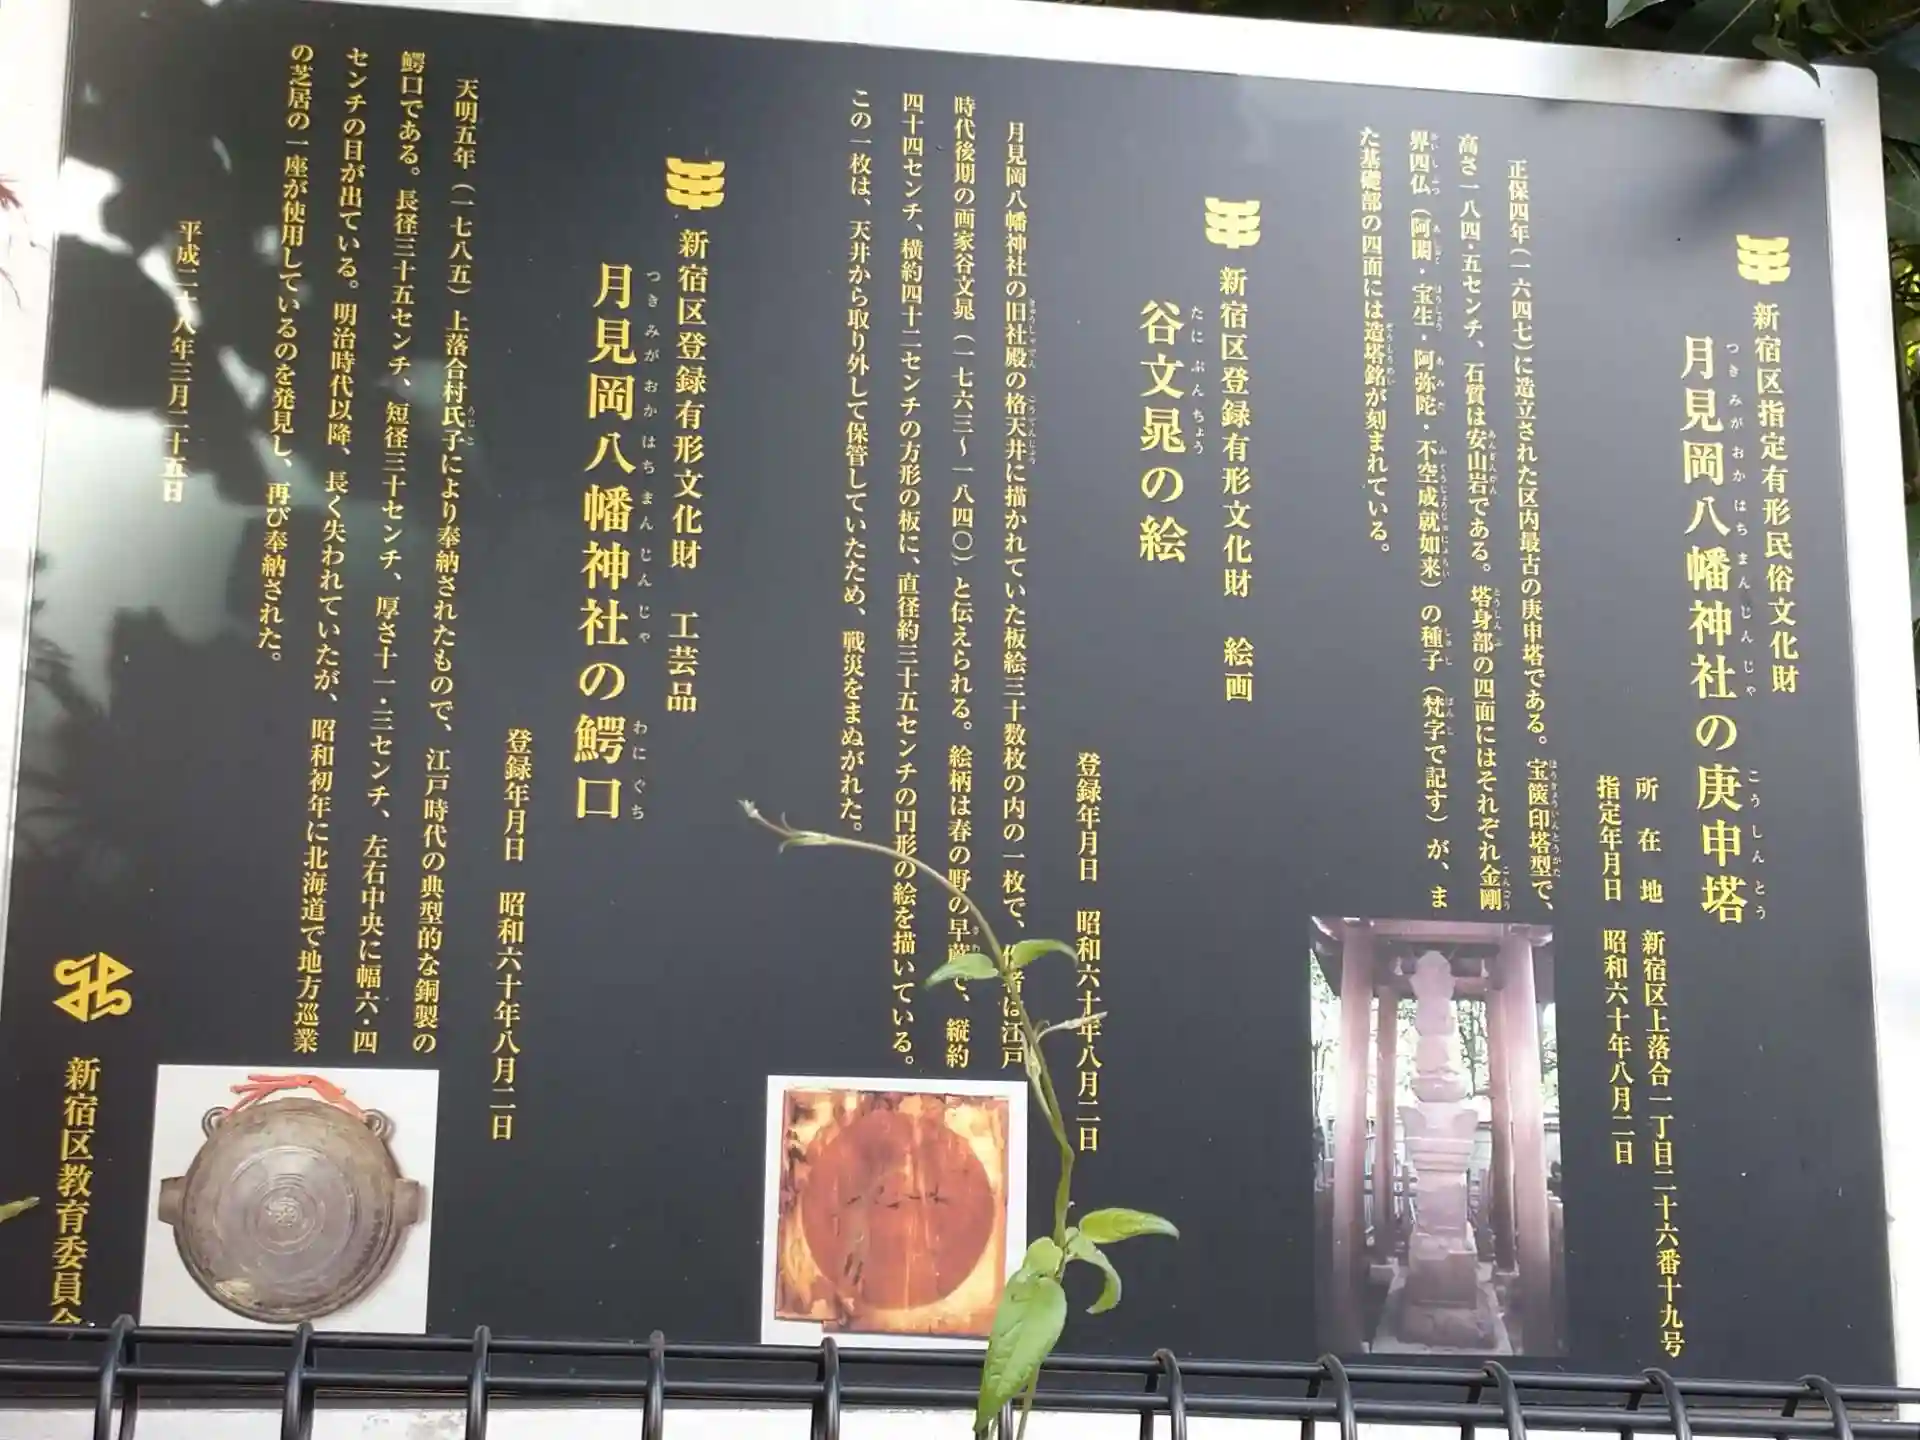 新宿区指定有形民俗文化財
月見岡八幡神社の庚申塔
つきみがおかはちまんじんじゃ こうしんとう
所在地 新宿区上落合一丁目二十六番十九号
指定年月日 昭和六十年八月二日
正保四年(一六四七)に造立された区内最古の庚申塔である。宝篋印塔型で、
高さ一八四・五センチ、石質は安山岩である。塔身部の四面にはそれぞれ金剛
界四仏(阿閦・宝生・阿弥陀・不空成就如来)の種子(梵字で記す)が、ま
た基礎部の四面には造塔銘が刻まれている。
新宿区登録有形文化財 絵画
谷文晁の絵
たにぶんちょう
登録年月日 昭和六十年八月二日
月見岡八幡神社の旧社殿の格天井に描かれていた板絵三十数枚の内の一枚で、者は江戸
時代後期の画家谷文晁(一七六三〜一八四〇)と伝えられる。絵柄は春の野の早蕨で、縦約
四十四センチ、横約四十二センチの方形の板に、直径約三十五センチの円形の絵を描いている。
この一枚は、天井から取り外して保管していたため、戦災をまぬがれた。
新宿区登録有形文化財 工芸品
月見岡八幡神社の鰐口
つきみがおかはちまんじんじゃ わにぐち
登録年月日 昭和六十年八月二日
天明五年(一七八五)上落合村氏子により奉納されたもので、江戸時代の典型的な銅製の
鰐口である。長径三十五センチ、短径三十センチ、厚さ十一・三センチ、左右中央に幅六・四
センチの目が出ている。明治時代以降、長く失われていたが、昭和初年に北海道で地方巡業
の芝居の一座が使用しているのを発見し、再び奉納された。
平成二十八年三月二十五日
新宿区教育委員会